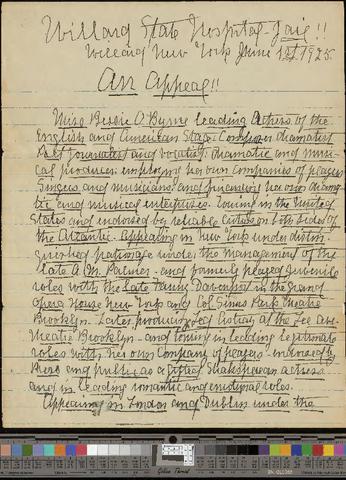 Willard State Hospital-Jail!!
Willard New York June 1st 1925.
An Appeal!!
Miss Bessie O. Byrne leading Actress of the
English and American Stage Composer dramatist
journalist and vocalist: dramatic and musi-
cal producer employing her own Companies of players
Singers and musicians and financing her own drama
tic and musical enterprises. Touring in the United
States and endorsed by reliable critics on both sides of
the Atlantic. Appearing in New York under distin-
guished patronage under the management of the
late A. M. Palmer and formerly played Juvenile
roles with the late Fanny Davenport in the Grand
Opera House New York and Col. Sinns Park Theatre
Brooklyn. Later producing at the Lee Ave.
Theatre Brooklyn - and touring in leading legitimate
roles with her own Company of players - endorsed by
Press and public as a gifted Shakespearean actress
and in leading romantic and emotional roles.
Appearing in London and Dublin under the